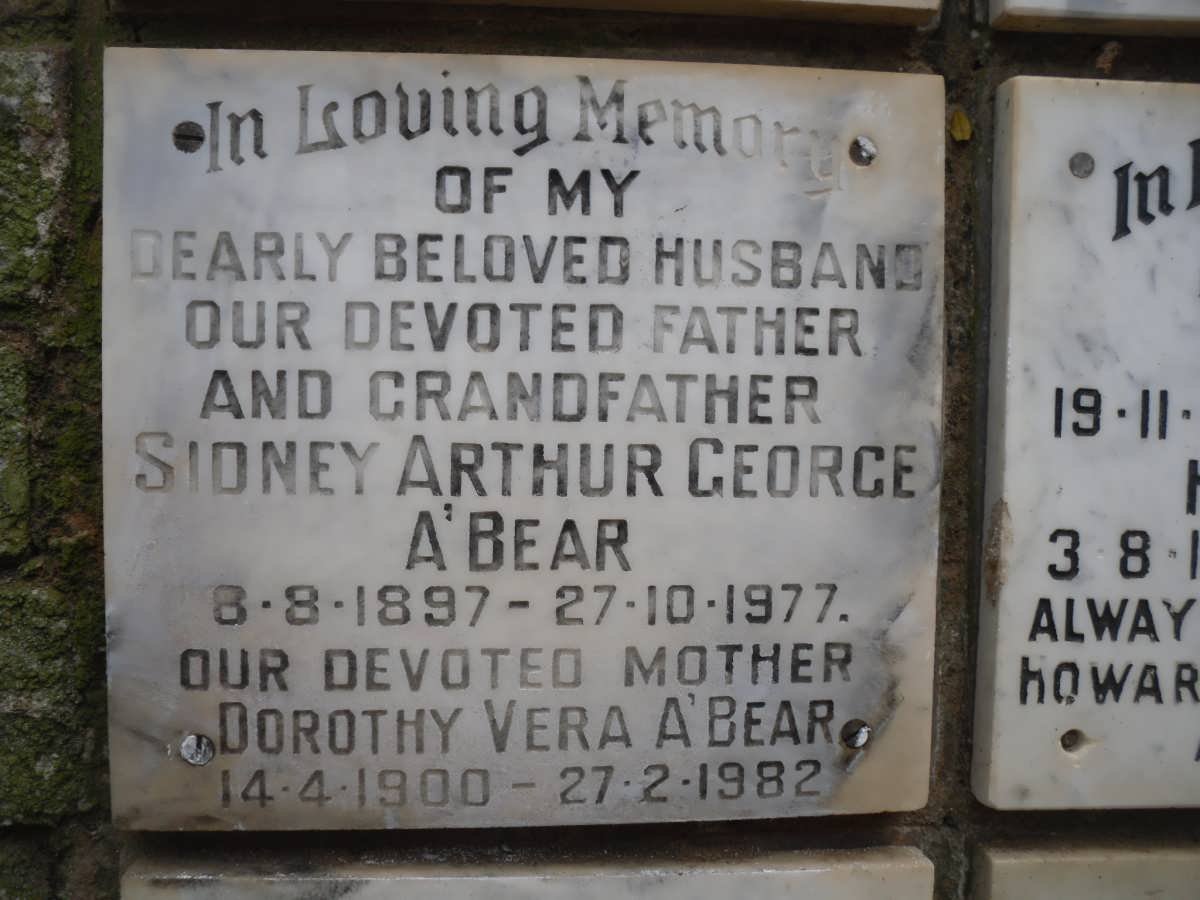 In Loving Memory
OF MY
DEARLY BELOVED HUSBAND
OUR DEVOTED FATHER
AND GRANDFATHER
SIDNEY ARTHUR GEORGE
A'BEAR
8·8·1897 – 27·10·1977.
OUR DEVOTED MOTHER
DOROTHY VERA A'BEAR
14·4·1900 – 27·2·1982
In
19·11·
3·8·1
ALWAY
HOWAR